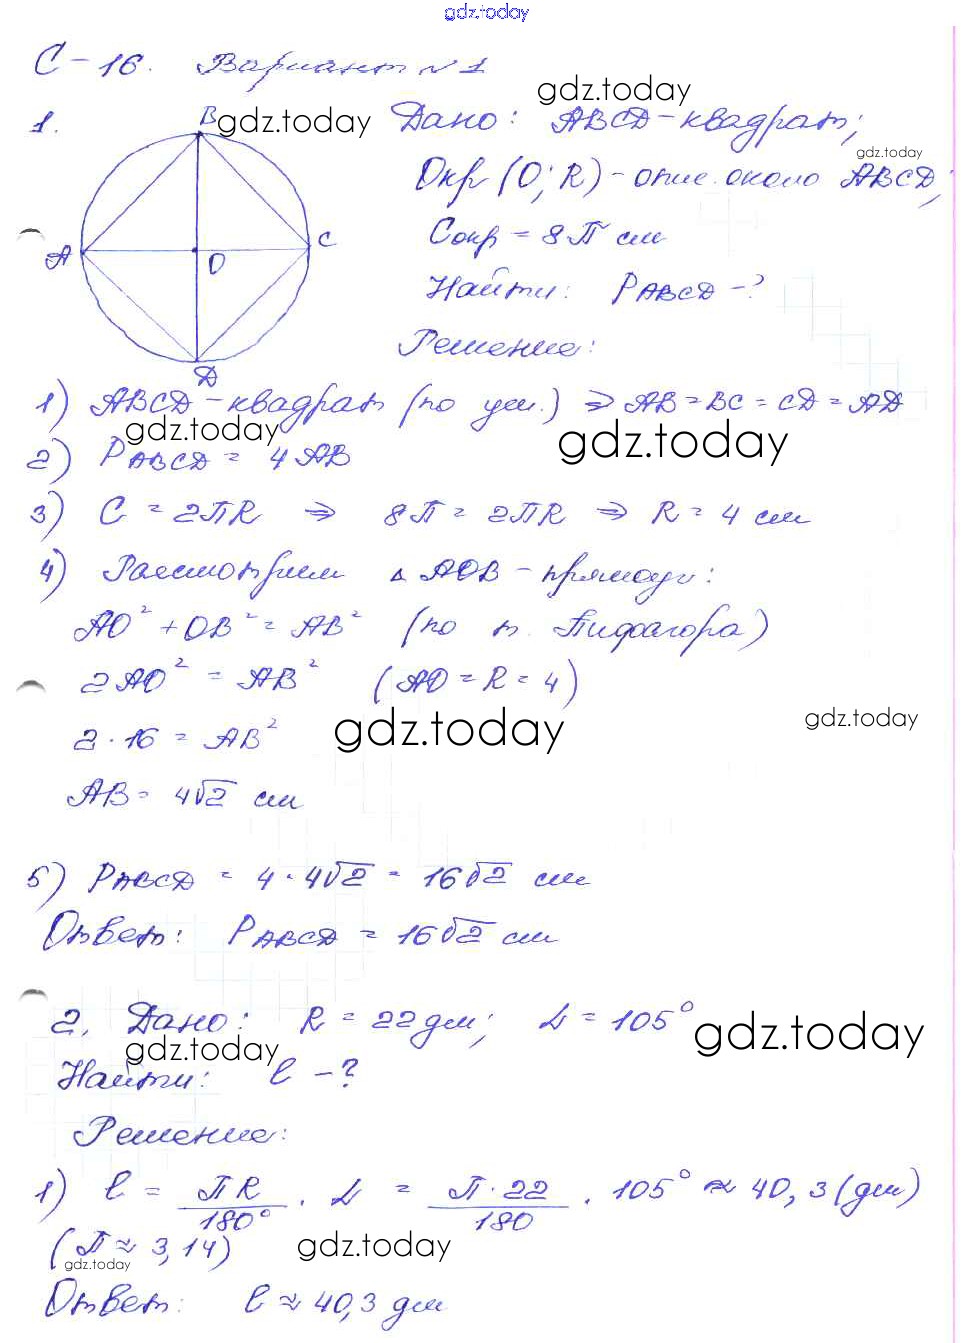 gdz.today
С-16. Вариант №1
gdz.today
1.
B
gdz.today
Дано: ABCD-квадрат;
gdz.today
Окр(О; R)-опис. около ABCD;
Cокр = 8П см
A
O
C
Найти: PABCD-?
Решение:
D
1) ABCD-квадрат (по усл.) ⇒ AB=BC=CD=AD
gdz.today
gdz.today
2) PABCD = 4AB
3) C = 2ПR ⇒ 8П = 2ПR ⇒ R = 4 см
4) Рассмотрим △ AOB-прямоуг:
AO² + OB² = AB² (по т. Пифагора)
2AO² = AB² (AO = R = 4)
gdz.today
gdz.today
2·16 = AB²
AB = 4√2 см
5) PABCD = 4·4√2 = 16√2 см
Ответ: PABCD = 16√2 см
2. Дано: R = 22 дм; α = 105°
gdz.today
gdz.today
Найти: l -?
Решение:
1) l = ПR/180° · α = П·22/180 · 105° ≈ 40,3 (дм)
(П ≈ 3,14)
gdz.today
gdz.today
Ответ: l ≈ 40,3 дм